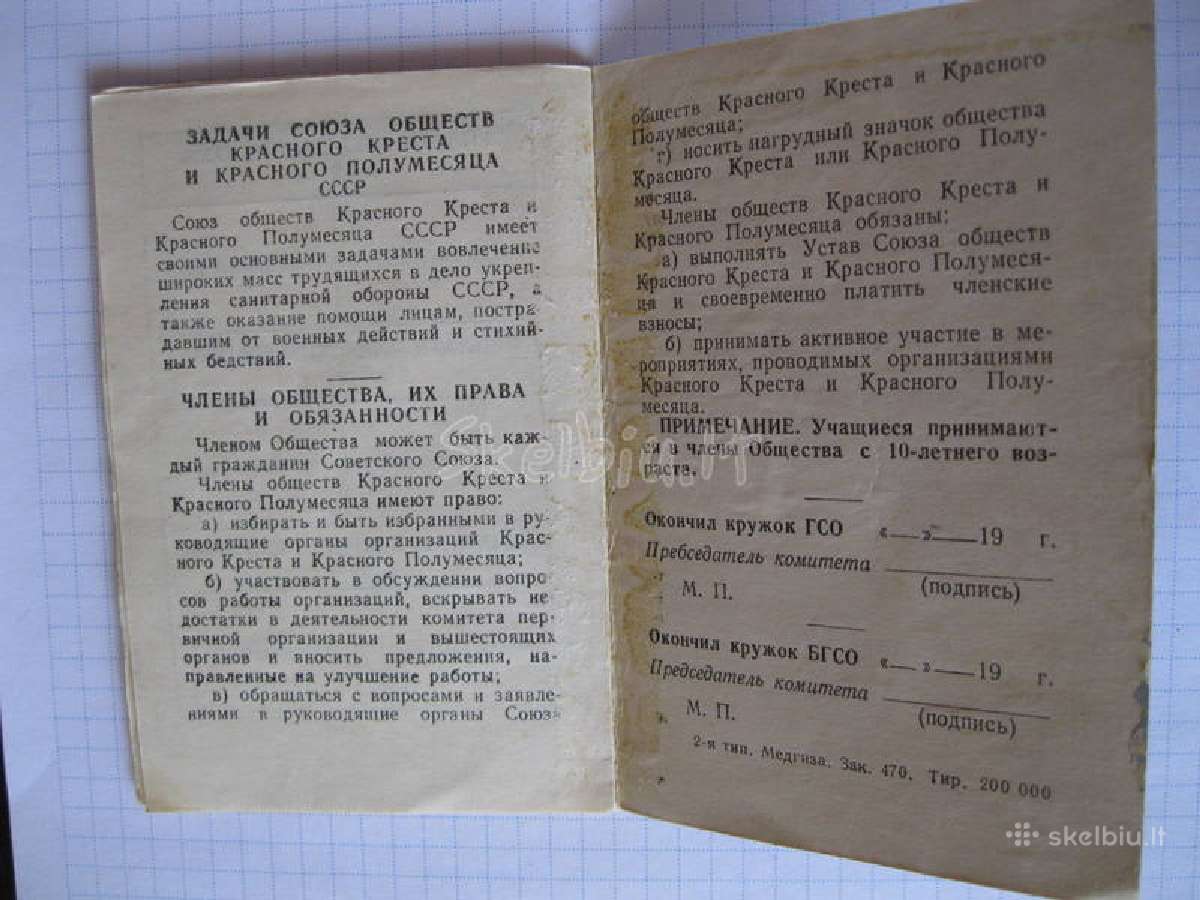 ЗАДАЧИ СОЮЗА ОБЩЕСТВ
КРАСНОГО КРЕСТА
И КРАСНОГО ПОЛУМЕСЯЦА
СССР
Союз обществ Красного Креста и
Красного Полумесяца СССР имеет
своими основными задачами вовлечение
широких масс трудящихся в дело укреп-
ления санитарной обороны СССР, а
также оказание помощи лицам, постра-
давшим от военных действий и стихий-
ных бедствий.
ЧЛЕНЫ ОБЩЕСТВА, ИХ ПРАВА
И ОБЯЗАННОСТИ
Членом Общества может быть каж-
дый гражданин Советского Союза.
Члены обществ Красного Креста и
Красного Полумесяца имеют право:
а) избирать и быть избранными в ру-
ководящие органы организаций Крас-
ного Креста и Красного Полумесяца;
б) участвовать в обсуждении вопро-
сов работы организаций, вскрывать не-
достатки в деятельности комитета пер-
вичной организации и вышестоящих
органов и вносить предложения, на-
правленные на улучшение работы;
в) обращаться с вопросами и заявле-
ниями в руководящие органы Союза
обществ Красного Креста и Красного
Полумесяца;
г) носить нагрудный значок общества
Красного Креста или Красного Полу-
месяца.
Члены обществ Красного Креста и
Красного Полумесяца обязаны:
а) выполнять Устав Союза обществ
Красного Креста и Красного Полумеся-
ца и своевременно платить членские
взносы;
б) принимать активное участие в ме-
роприятиях, проводимых организациями
Красного Креста и Красного Полу-
месяца.
ПРИМЕЧАНИЕ. Учащиеся принимают-
ся в члены Общества с 10-летнего воз-
раста.
Окончил кружок ГСО «__»___19 г.
Председатель комитета
(подпись)
М. П.
Окончил кружок БГСО «__»___19 г.
Председатель комитета
(подпись)
М. П.
2-я тип. Медгиза. Зак. 470. Тир. 200 000
Skelbiu.lt
skelbiu.lt